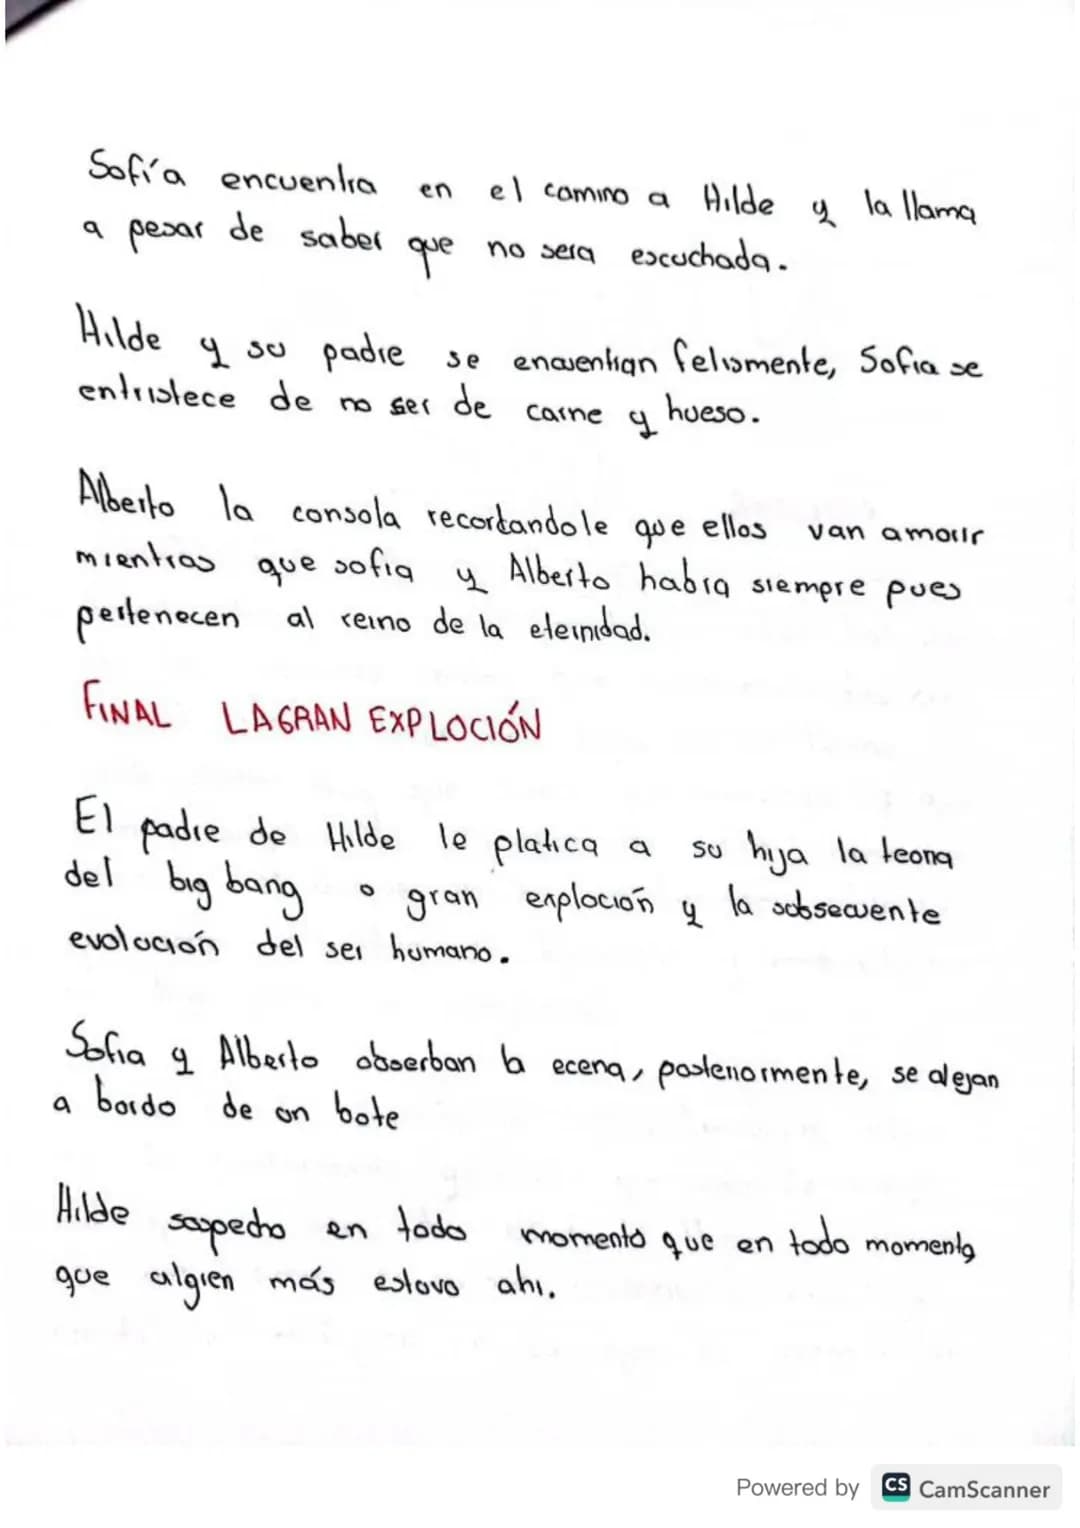 Sofía encuentra en el camino a Hilde y la llama
a pesar de saber que no sera escuchada.
Hilde y su padre se encuentran felismente, Sofia se
entristece de no ser de carne y hueso.
Alberto la consola recortandole que ellos van amorir
mientras que sofia y Alberto habra siempre pues
pertenecen al reino de la eternidad.
FINAL LA GRAN EXPLOCIÓN
El padre de Hilde le platica a su hija la teoria
del big bang o gran exploción y la subsecuente
evolución del ser humano.
Sofia y Alberto obserban la ecena, posteriormente, se alejan
a bordo de un bote
Hilde sospecho en todo momento que en todo momento
que algien más estuvo ahi.
Powered by CS CamScanner